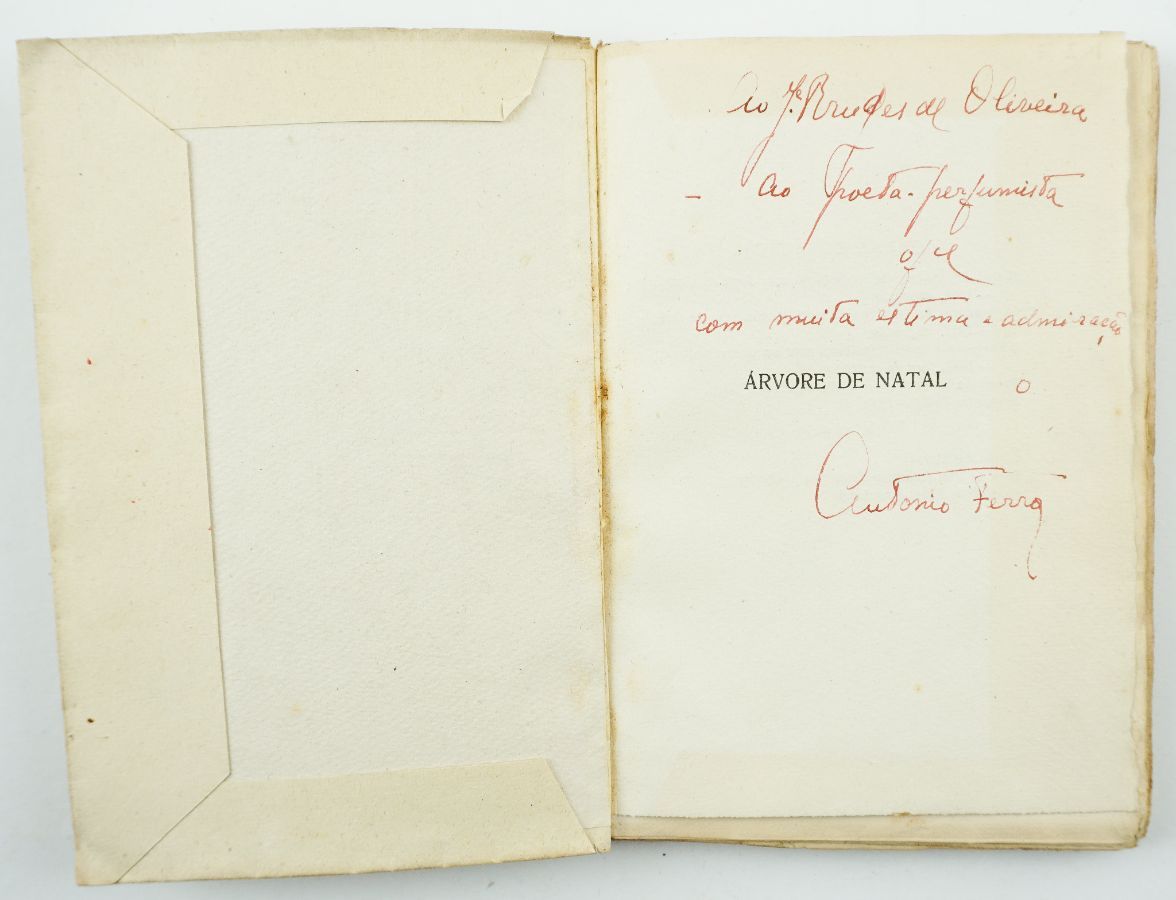 Ao J.e Bruges de Oliveira
- ao Poeta-perfumista
of.ce
com muita estima e admiração
ÁRVORE DE NATAL
o
Antonio Ferro